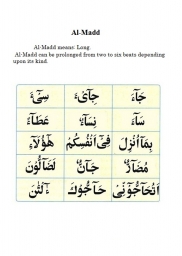 Al-Madd
Al-Madd means: Long.
Al-Madd can be prolonged from two to six beats depending
upon its kind.
جَآءَ جِآىْٓءَ سِىْٓءَ
سَآءَ نِسَآءً عَطَآءً
بِمَآ اُنْزِلَ فِىْٓ اَنْفُسِكُمْ هٰٓؤُلَآءِ
مُضَآرٍّ جَآنٌّ لَضَآلُّوْنَ
اَتُحَآجُّوْٓنِّىْ حَآجُّوْكَ